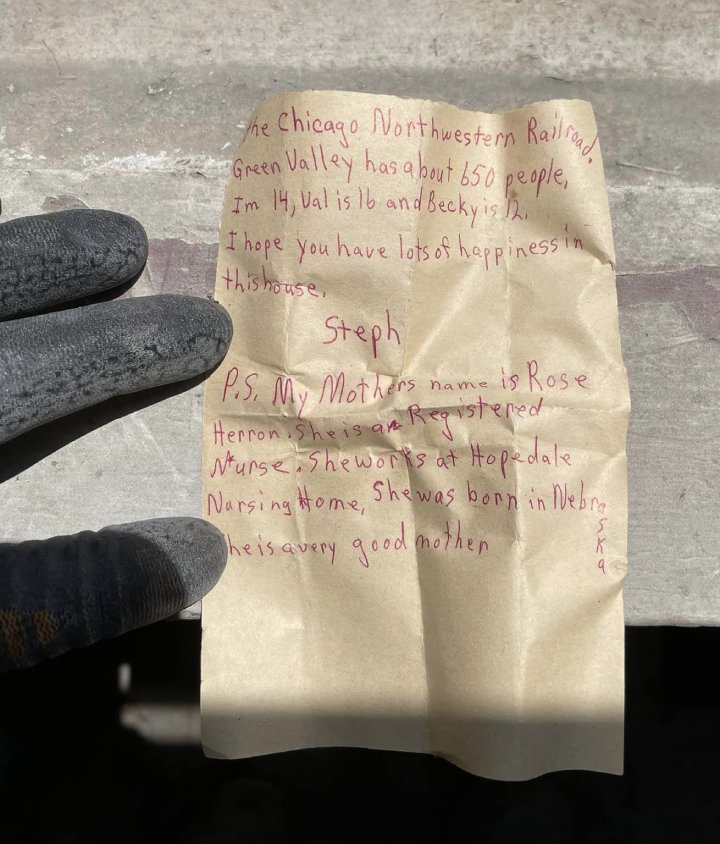 The Chicago Northwestern Railroad.
Green Valley has about 650 people,
Im 14, Val is 16 and Becky is 12.
I hope you have lots of happiness in
this house.
Steph
P.S. My Mothers name is Rose
Herron. She is an Registered
Nurse. She works at Hopedale
Nursing Home, She was born in Nebraska
She is a very good mother